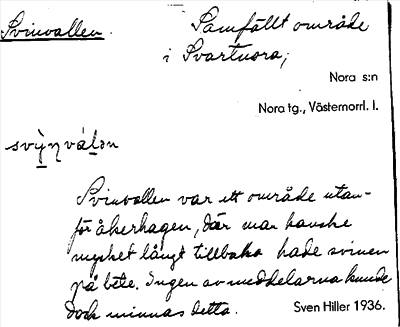 Svinvallen.
Samfällt område
i Svartnora;
Nora s:n
Nora tg., Västernorrl. l.
svỳnválən
Svinvallen var ett område utan-
för åkerhagen, där man kanske
mycket långt tillbaka hade svinen
på bete. Ingen av meddelarna kunde
dock minnas detta.
Sven Hiller 1936.